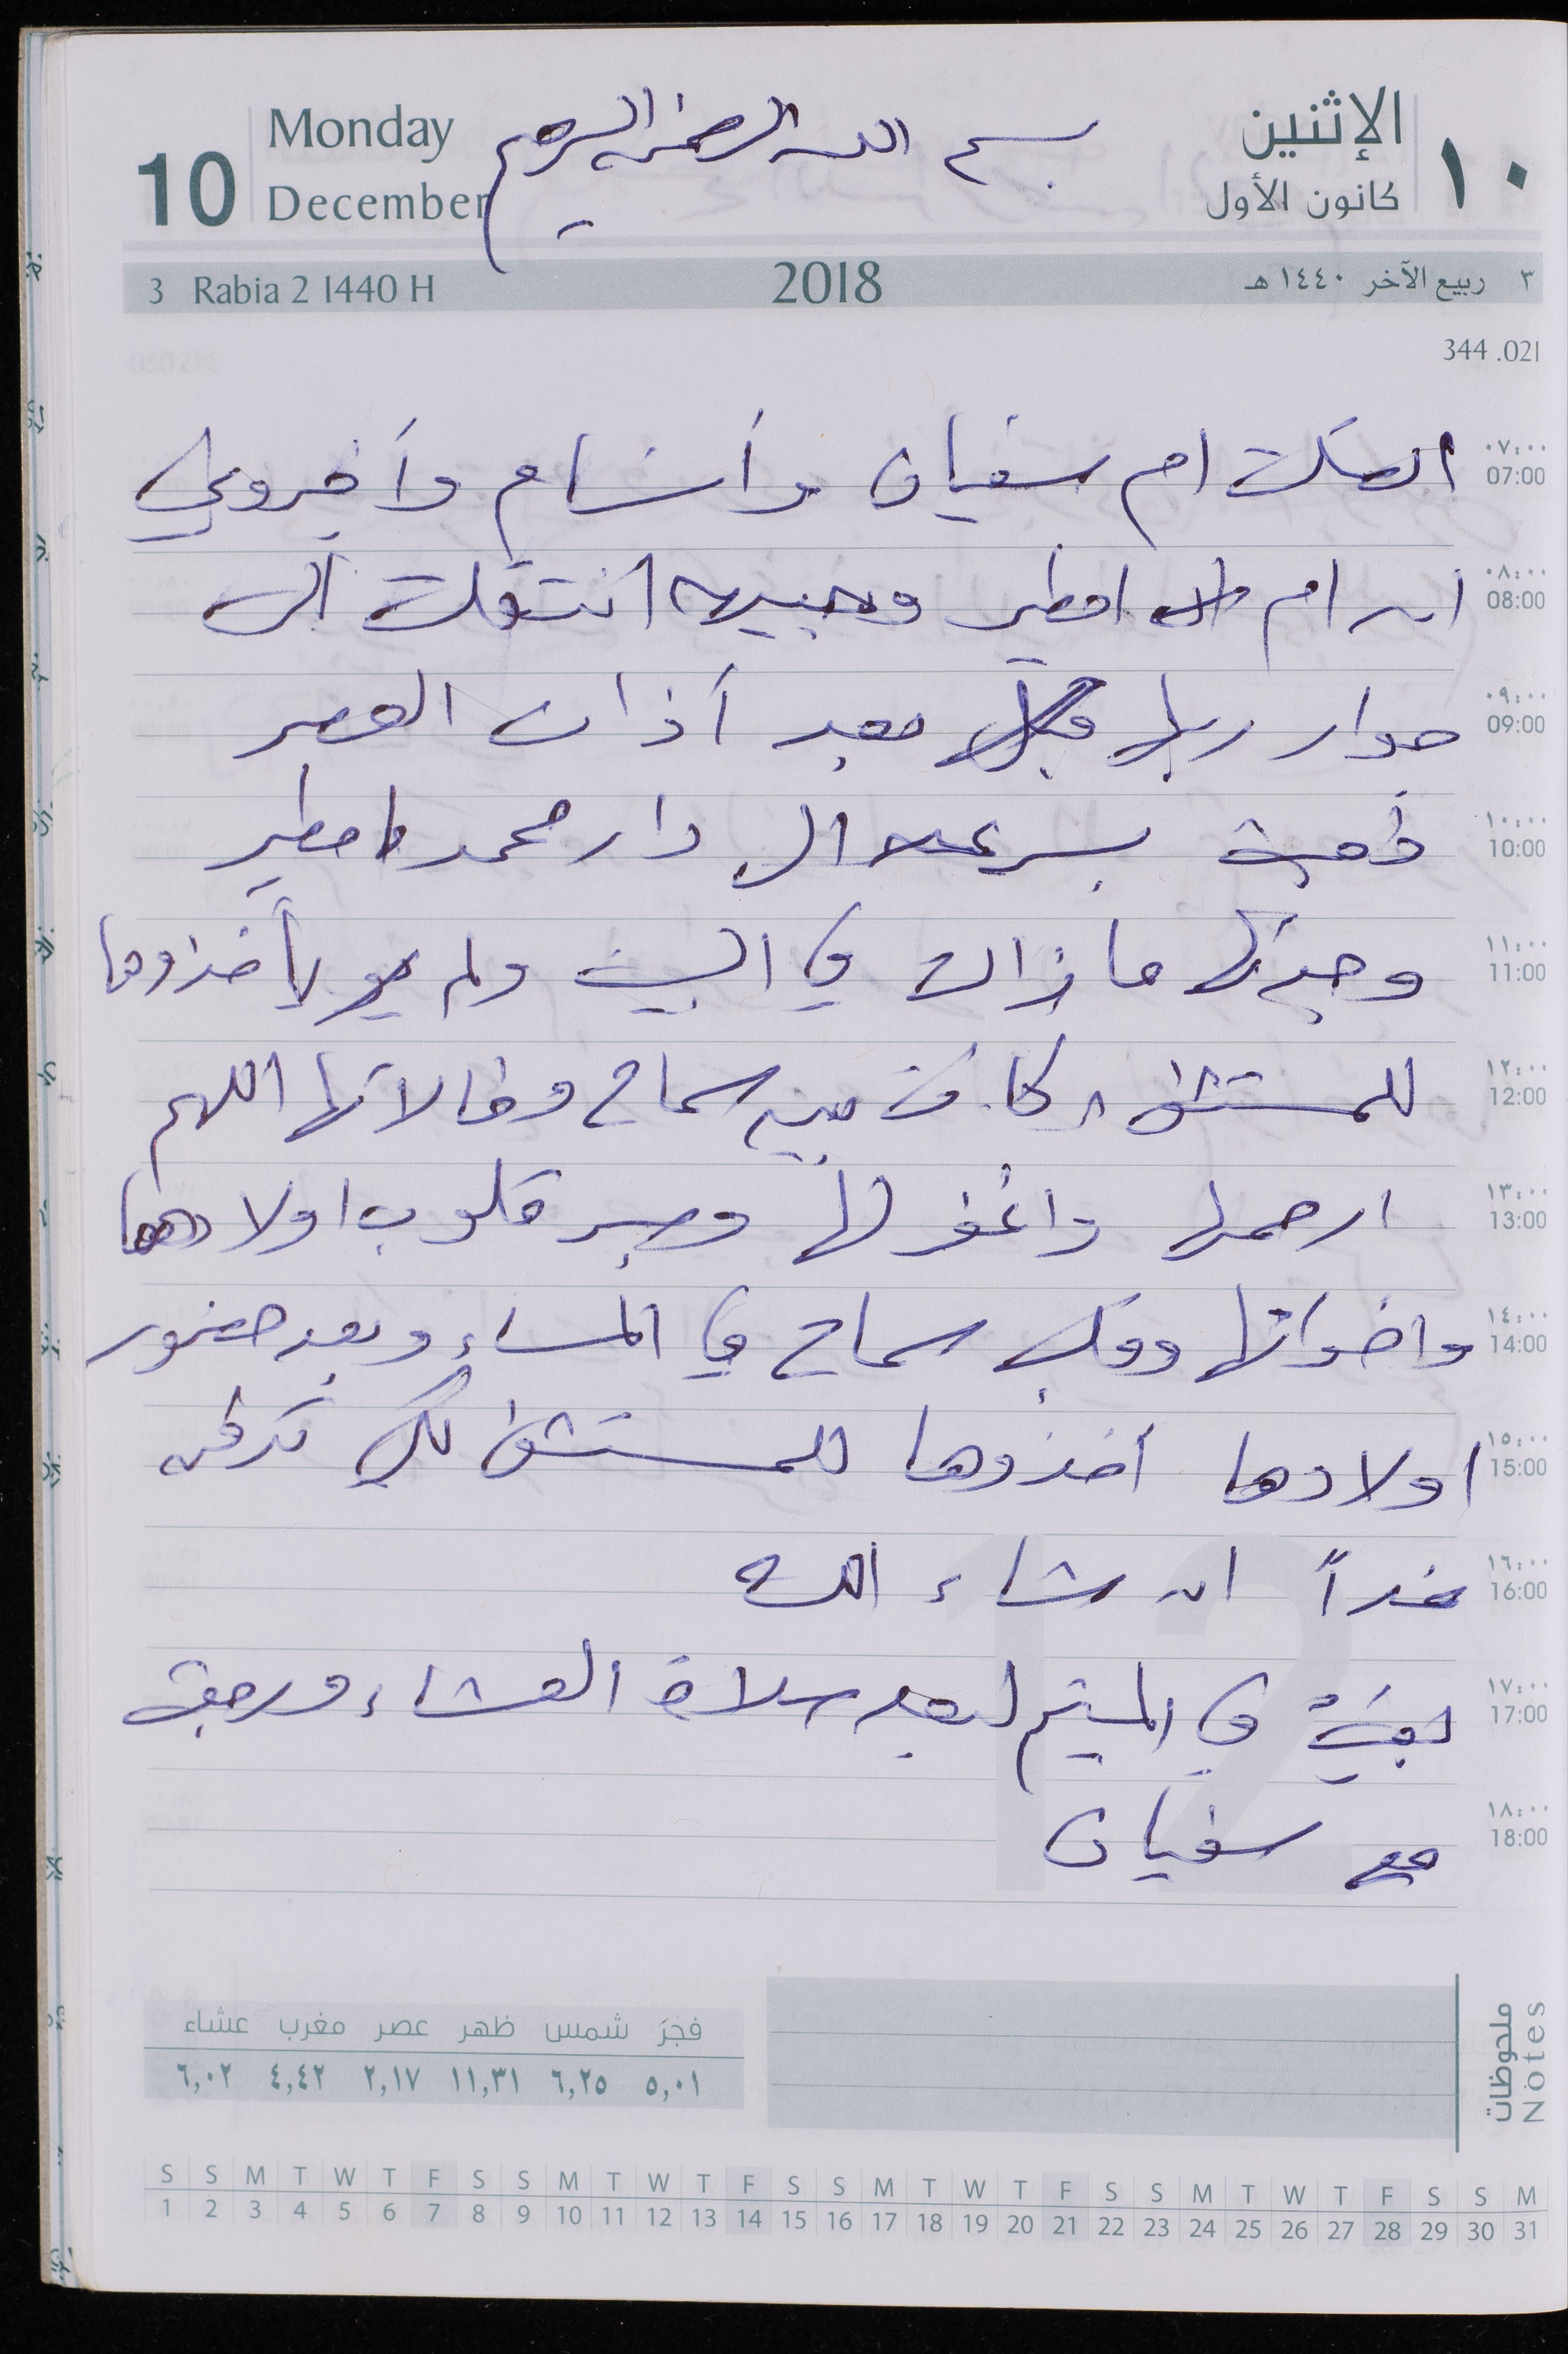 Monday
December
10
بسم الله الرحمن الرحيم
الإثنين
كانون الأول
١٠
3 Rabia 2 1440 H
2018
٣ ربيع الآخر ١٤٤٠ هـ
344 .021
٠٧:٠٠
07:00
اتصلت ام سفيان وأنا نام وأخبروني
٠٨:٠٠
08:00
ان ام امطير وجيه انتقلت الى
٠٩:٠٠
09:00
جوار ربها بعد أذان العصر
١٠:٠٠
10:00
ذهبت بسرعه الى دار محمد امطير
١١:٠٠
11:00
وجدتها ما زالت في البيت ولم يأخذوها
١٢:٠٠
12:00
للمستشفى كانت سماح وخالاتها اللهم
١٣:٠٠
13:00
ارحمها واغفر لها وصبر قلوب اولادها
١٤:٠٠
14:00
واخواتها سماح في المساء وبعد حضور
١٥:٠٠
15:00
اولادها أخذوها للمستشفى لكي تدفن
١٦:٠٠
16:00
غداً ان شاء الله
١٧:٠٠
17:00
بقيت في لبعد سلاة العشاء ورجعت
١٨:٠٠
18:00
مع سفيان
12
ملحوظات
Notes
فجر شمس ظهر عصر مغرب عشاء
٥,٠١ ٦,٢٥ ١١,٣١ ٢,١٧ ٤,٤٢ ٦,٠٢
S S M T W T F S S M T W T F S S M T W T F S S M T W T F S S M
1 2 3 4 5 6 7 8 9 10 11 12 13 14 15 16 17 18 19 20 21 22 23 24 25 26 27 28 29 30 31